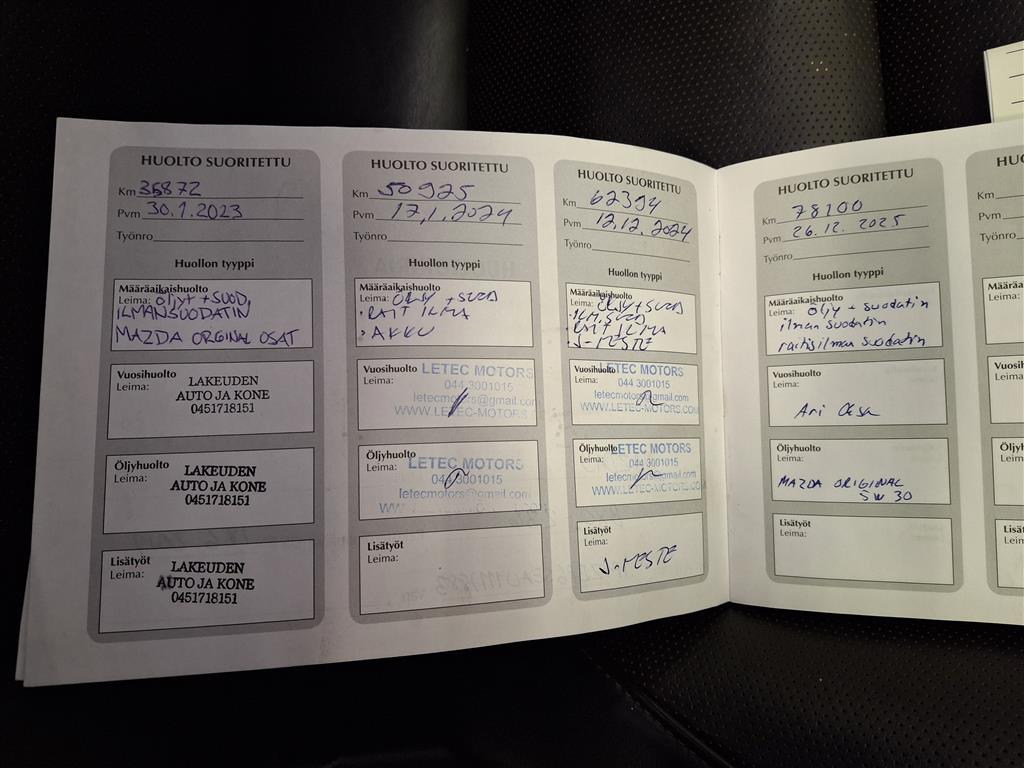 HUOLTO SUORITETTU
Km 35872
Pvm 30.1.2023
Työnro
Huollon tyyppi
Määräaikaishuolto
Leima: ÖLJYT + SUOD,
ILMANSUODATIN
MAZDA ORGINAL OSAT
Vuosihuolto
Leima:
LAKEUDEN
AUTO JA KONE
0451718151
Öljyhuolto
Leima:
LAKEUDEN
AUTO JA KONE
0451718151
Lisätyöt
Leima:
LAKEUDEN
AUTO JA KONE
0451718151
HUOLTO SUORITETTU
Km 50925
Pvm 17.1.2024
Työnro
Huollon tyyppi
Määräaikaishuolto
Leima: ÖLJY + SUOD
• RAIT ILMA
• AKKU
Vuosihuolto
Leima:
LETEC MOTORS
044 3001015
letecmotors@gmail.com
WWW.LETEC-MOTORS.
Öljyhuolto
Leima:
LETEC MOTORS
044 3001015
letecmotors@gmail.com
Lisätyöt
Leima:
HUOLTO SUORITETTU
Km 62394
Pvm 12.12.2024
Työnro
Huollon tyyppi
Määräaikaishuolto
Leima: ÖLJY + SUOD
• ILM. SUOD
• RAIT ILMA
• J-NESTE
Vuosihuolto
Leima:
LETEC MOTORS
044 3001015
letecmotors@gmail.com
WWW.LETEC-MOTORS.COM
Öljyhuolto
Leima:
LETEC MOTORS
044 3001015
letecmotors@gmail.com
WWW.LETEC-MOTORS.COM
Lisätyöt
Leima:
J-NESTE
HUOLTO SUORITETTU
Km 78100
Pvm 26.12.2025
Työnro
Huollon tyyppi
Määräaikaishuolto
Leima: Öljy + suodatin
ilman suodatin
raitisilman suodatin
Vuosihuolto
Leima:
Ari
Öljyhuolto
Leima:
MAZDA ORIGINAL
5W30
Lisätyöt
Leima: